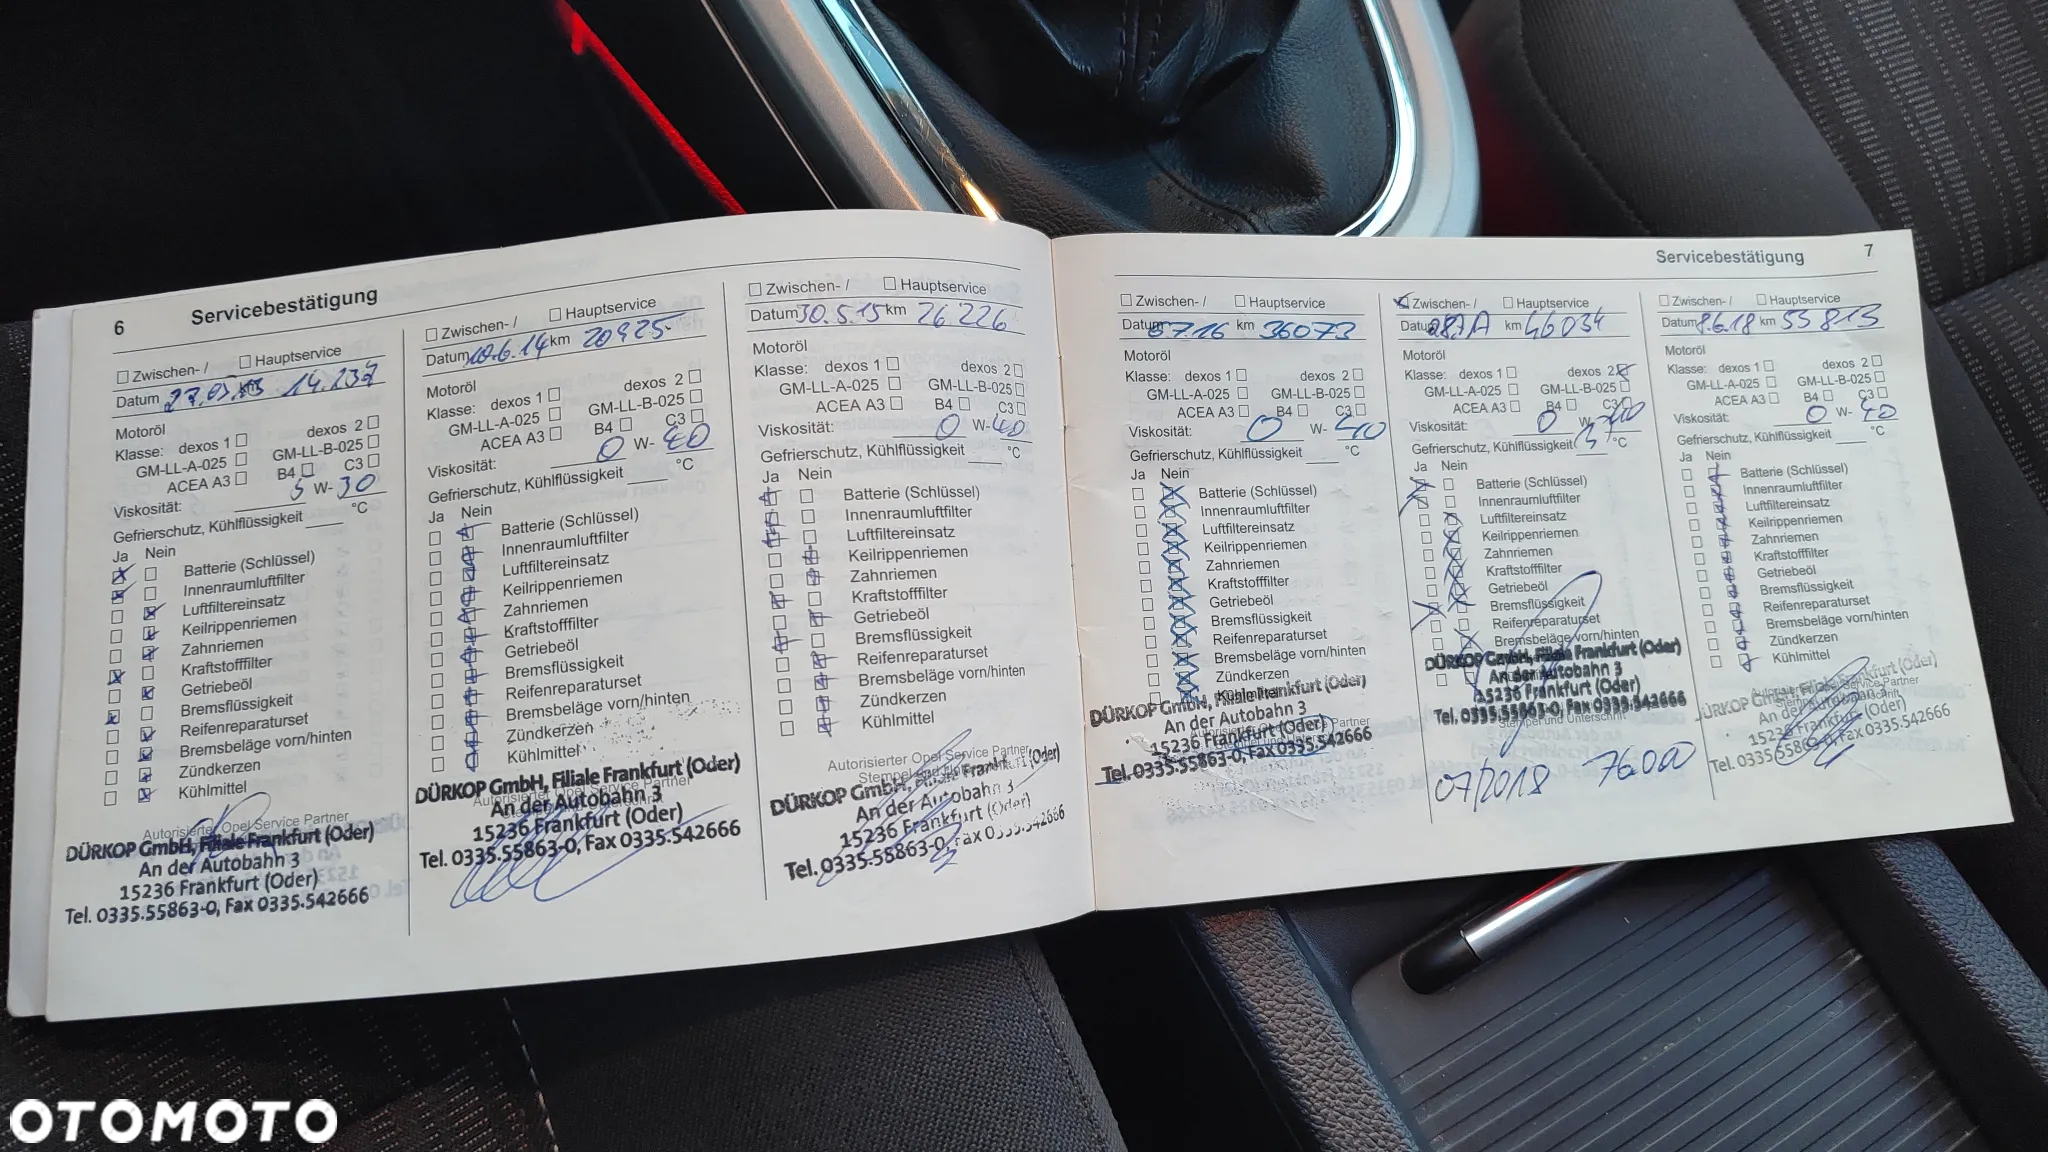 6 Servicebestätigung
Zwischen- / Hauptservice
Datum 27.05.13 km 14.237
Motoröl
Klasse: dexos 1 dexos 2
GM-LL-A-025 GM-LL-B-025
ACEA A3 B4 C3
Viskosität: 5 W- 30
Gefrierschutz, Kühlflüssigkeit °C
Ja Nein
Batterie (Schlüssel)
Innenraumluftfilter
Luftfiltereinsatz
Keilrippenriemen
Zahnriemen
Kraftstofffilter
Getriebeöl
Bremsflüssigkeit
Reifenreparaturset
Bremsbeläge vorn/hinten
Zündkerzen
Kühlmittel
Autorisierter Opel Service Partner
DÜRKOP GmbH, Filiale Frankfurt (Oder)
An der Autobahn 3
15236 Frankfurt (Oder)
Tel. 0335.55863-0, Fax 0335.542666
Zwischen- / Hauptservice
Datum 10.6.14 km 20925
Motoröl
Klasse: dexos 1 dexos 2
GM-LL-A-025 GM-LL-B-025
ACEA A3 B4 C3
Viskosität: 0 W- 40
Gefrierschutz, Kühlflüssigkeit °C
Ja Nein
Batterie (Schlüssel)
Innenraumluftfilter
Luftfiltereinsatz
Keilrippenriemen
Zahnriemen
Kraftstofffilter
Getriebeöl
Bremsflüssigkeit
Reifenreparaturset
Bremsbeläge vorn/hinten
Zündkerzen
Kühlmittel
DÜRKOP GmbH, Filiale Frankfurt (Oder)
Autorisierter Opel Service Partner
An der Autobahn 3
15236 Frankfurt (Oder)
Tel. 0335.55863-0, Fax 0335.542666
Zwischen- / Hauptservice
Datum 30.5.15 km 26226
Motoröl
Klasse: dexos 1 dexos 2
GM-LL-A-025 GM-LL-B-025
ACEA A3 B4 C3
Viskosität: 0 W- 40
Gefrierschutz, Kühlflüssigkeit °C
Ja Nein
Batterie (Schlüssel)
Innenraumluftfilter
Luftfiltereinsatz
Keilrippenriemen
Zahnriemen
Kraftstofffilter
Getriebeöl
Bremsflüssigkeit
Reifenreparaturset
Bremsbeläge vorn/hinten
Zündkerzen
Kühlmittel
Autorisierter Opel Service Partner
DÜRKOP GmbH, Filiale Frankfurt (Oder)
An der Autobahn 3
15236 Frankfurt (Oder)
Tel. 0335.55863-0, Fax 0335.542666
Servicebestätigung 7
Zwischen- / Hauptservice
Datum 07.16 km 36073
Motoröl
Klasse: dexos 1 dexos 2
GM-LL-A-025 GM-LL-B-025
ACEA A3 B4 C3
Viskosität: 0 W- 40
Gefrierschutz, Kühlflüssigkeit °C
Ja Nein
Batterie (Schlüssel)
Innenraumluftfilter
Luftfiltereinsatz
Keilrippenriemen
Zahnriemen
Kraftstofffilter
Getriebeöl
Bremsflüssigkeit
Reifenreparaturset
Bremsbeläge vorn/hinten
Zündkerzen
Kühlmittel
DÜRKOP GmbH, Filiale Frankfurt (Oder)
An der Autobahn 3
15236 Frankfurt (Oder)
Tel. 0335.55863-0, Fax 0335.542666
Zwischen- / Hauptservice
Datum km 46034
Motoröl
Klasse: dexos 1 dexos 2
GM-LL-A-025 GM-LL-B-025
ACEA A3 B4 C3
Viskosität: 0 W- 40
Gefrierschutz, Kühlflüssigkeit °C
Ja Nein
Batterie (Schlüssel)
Innenraumluftfilter
Luftfiltereinsatz
Keilrippenriemen
Zahnriemen
Kraftstofffilter
Getriebeöl
Bremsflüssigkeit
Reifenreparaturset
Bremsbeläge vorn/hinten
DÜRKOP GmbH, Filiale Frankfurt (Oder)
An der Autobahn 3
15236 Frankfurt (Oder)
Tel. 0335.55863-0, Fax 0335.542666
Stempel und Unterschrift
07/2018 76000
Zwischen- / Hauptservice
Datum 8.6.18 km 55813
Motoröl
Klasse: dexos 1 dexos 2
GM-LL-A-025 GM-LL-B-025
ACEA A3 B4 C3
Viskosität: 0 W- 40
Gefrierschutz, Kühlflüssigkeit °C
Ja Nein
Batterie (Schlüssel)
Innenraumluftfilter
Luftfiltereinsatz
Keilrippenriemen
Zahnriemen
Kraftstofffilter
Getriebeöl
Bremsflüssigkeit
Reifenreparaturset
Bremsbeläge vorn/hinten
Zündkerzen
Kühlmittel
Autorisierter Opel Service Partner
An der Autobahn 3
15236 Frankfurt (Oder)
Tel. 0335.55863-0, Fax 0335.542666
OTOMOTO